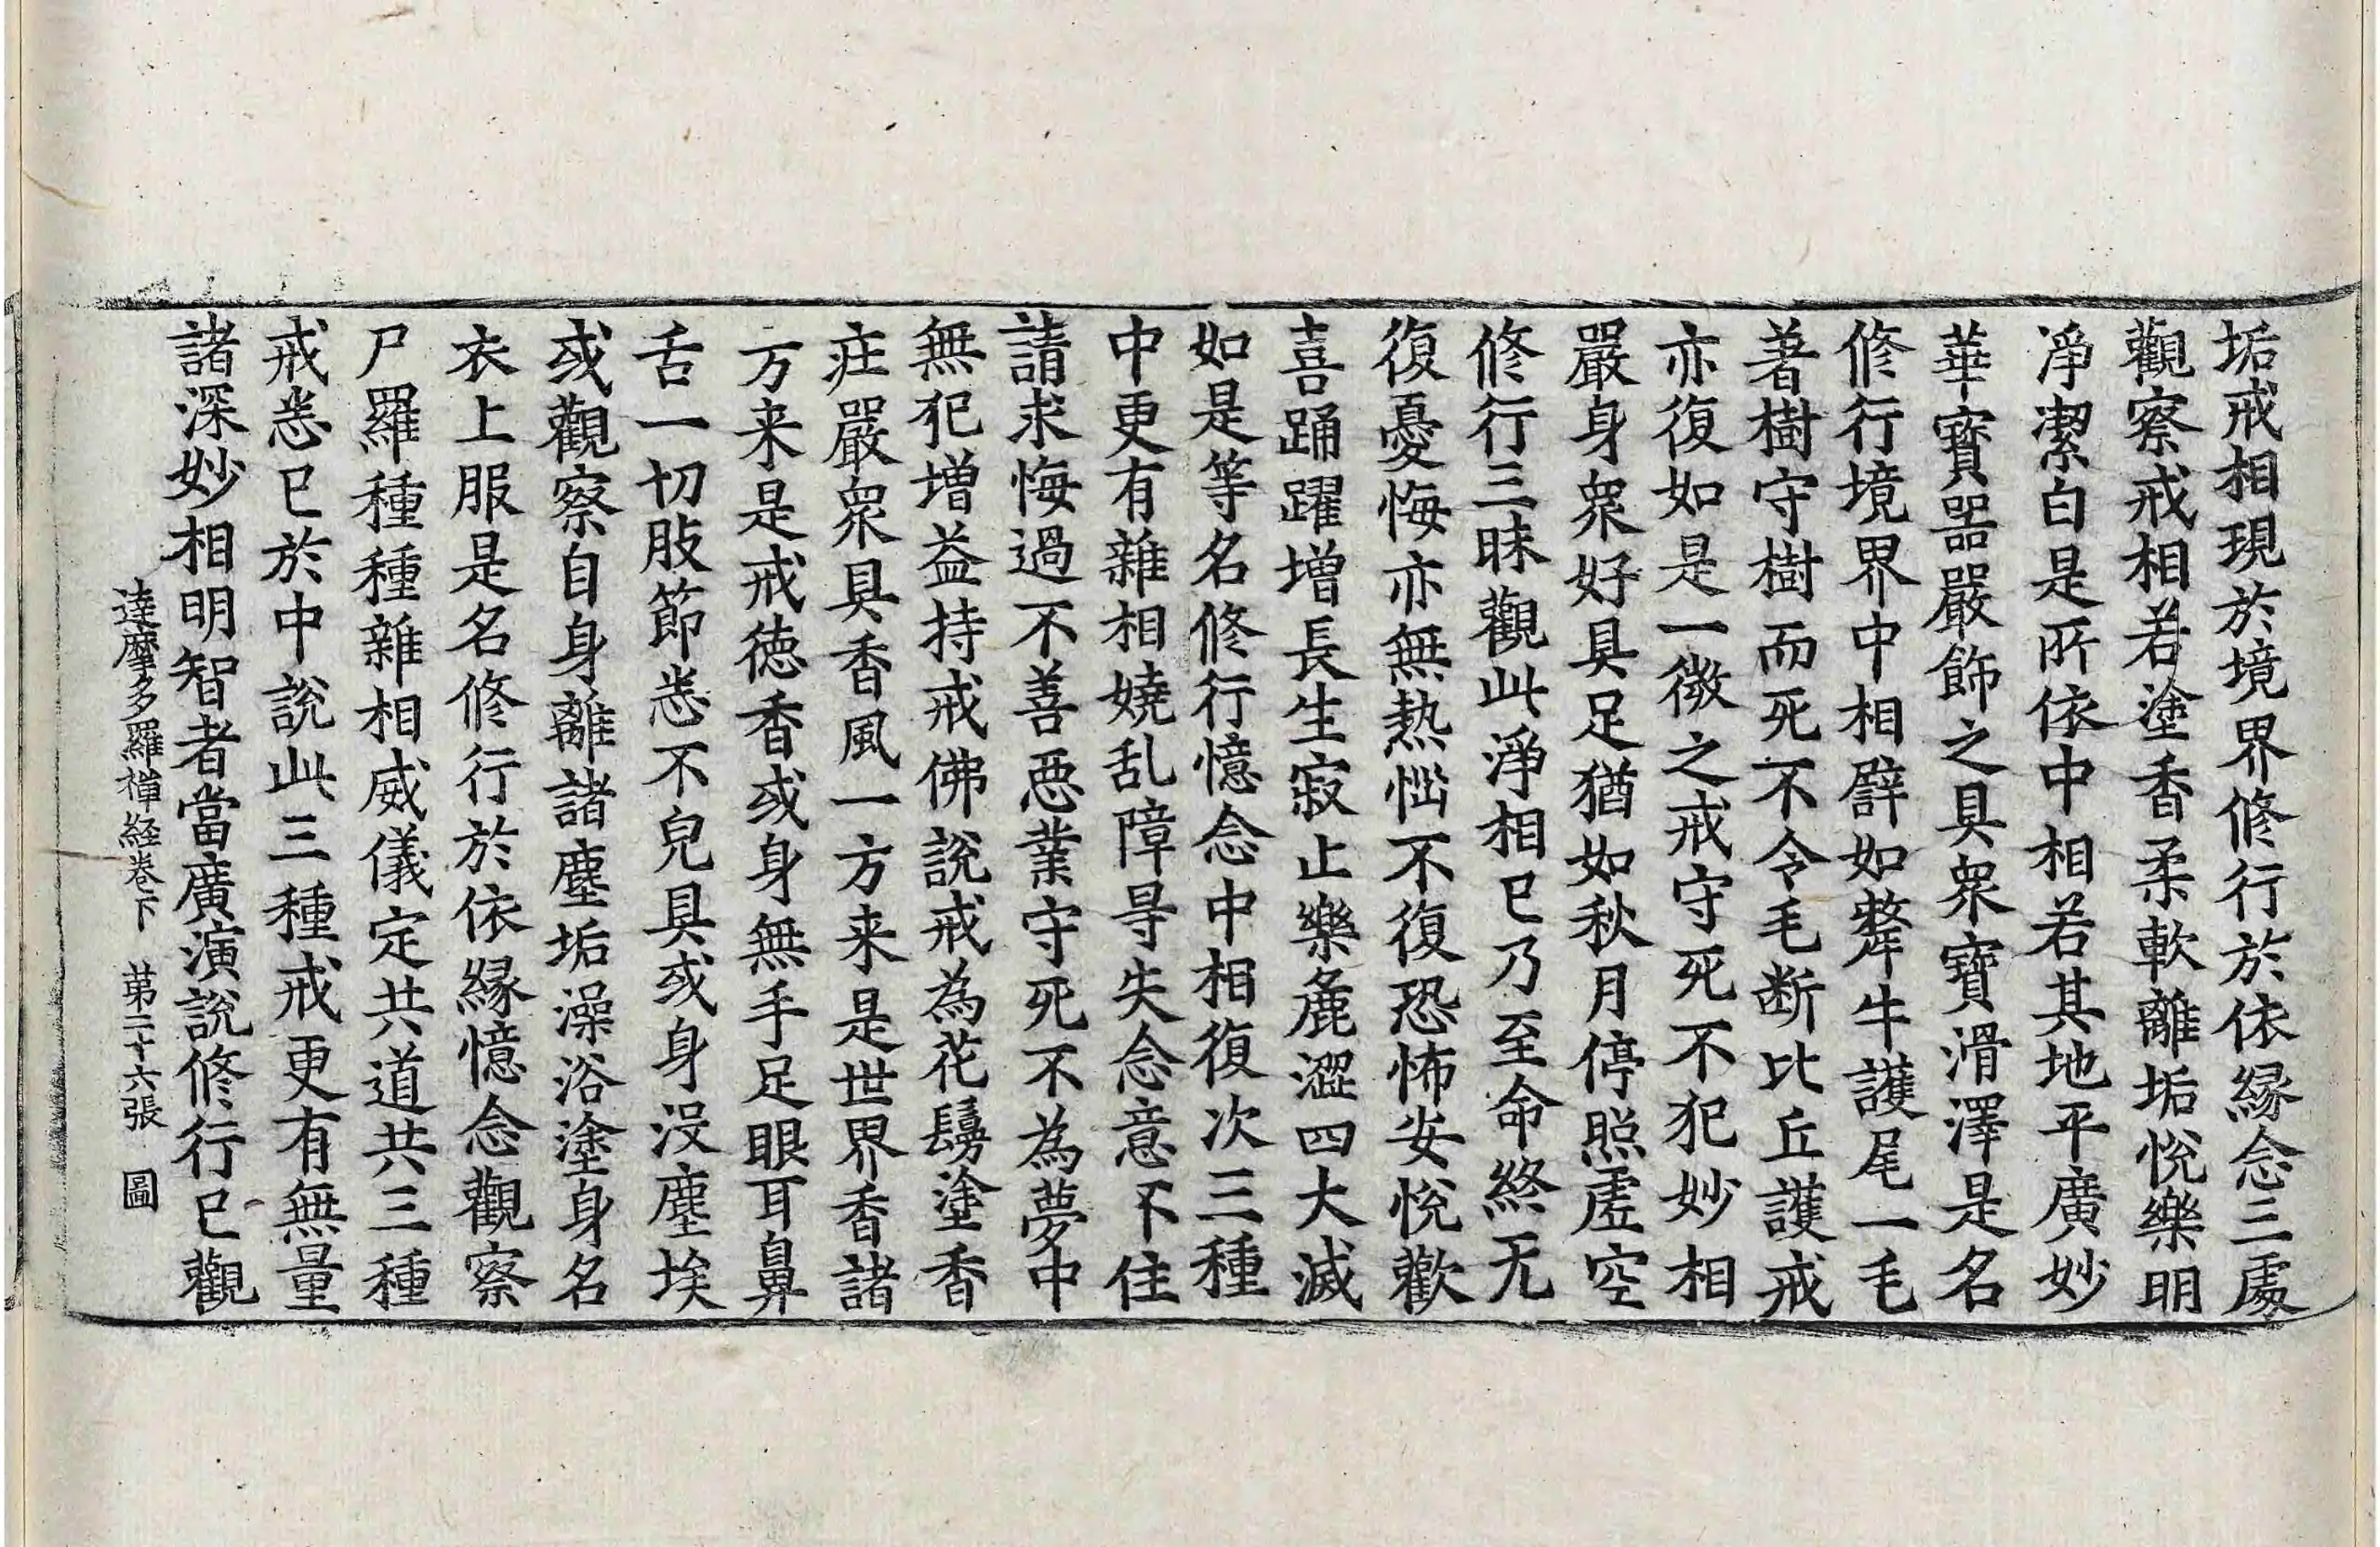 垢戒相現於境界修行於依縁念三處
觀察戒相若塗香柔軟離垢悅樂明
淨潔白是所依中相若其地平廣妙
華寶器嚴飾之具衆寶滑澤是名
修行境界中相辟如犛牛護尾一毛
著樹守樹而死不令毛断比丘護戒
亦復如是一微之戒守死不犯妙相
嚴身衆好具足猶如秋月停照虛空
修行三昧觀此淨相已乃至命終无
復憂悔亦無熱惱不復恐怖安悅歡
喜踊躍增長生寂止樂麁澀四大滅
如是等名修行憶念中相復次三種
中更有雜相嬈乱障㝵失念意不住
請求悔過不善惡業守死不為夢中
無犯增益持戒佛說戒為花鬘塗香
庄嚴衆具香風一方来是世界香諸
方来是戒徳香或身無手足眼耳鼻
舌一切肢節悉不皃具或身沒塵埃
或觀察自身離諸塵垢澡浴塗身名
衣上服是名修行於依縁憶念觀察
尸羅種種雜相威儀定共道共三種
戒悉已於中說此三種戒更有無量
諸深妙相明智者當廣演說修行已觀
達摩多羅禅経卷下 苐二十六張 圖